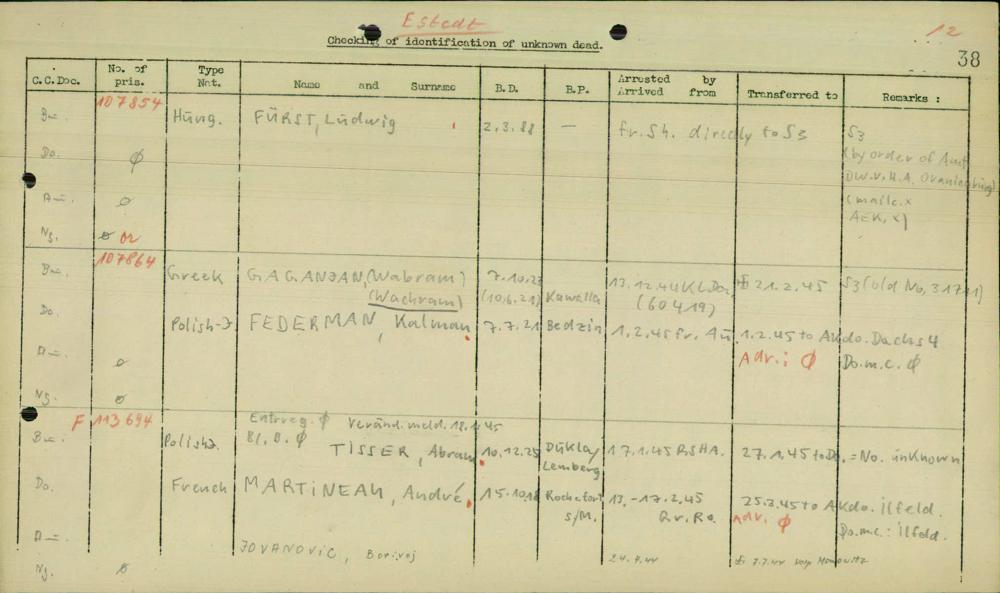 Estedt
12
Checking of identification of unknown dead.
38
C.C.Doc. No. of pris. Type Nat. Name and Surname B.D. B.P. Arrested by Arrived from Transferred to Remarks :
107854
Bu. Hung. FÜRST, Ludwig 2.3.88 — fr. Sh. directly to S3 S3
Do. ø (by order of Amt
DW.V.H.A. Oranienburg)
Au. ø (mailc.x
AEK, x)
Ng. ø or
107864
Bu. Greek GAGANJAN, (Wabram) 7.10.23 13.12.44 KL Da. 21.2.45 S3 (old No, 31771)
(Wachram) (10.6.21) Kawalla (60419)
Do. Polish-J FEDERMAN, Kalman 7.7.21 Bedzin 1.2.45 fr. Au 1.2.45 to AKdo. Dachs 4
Au. ø Adr.: ø Do.m.c. ø
Ng. ø
F 113694 Entrreg. ø Veränd.meld. 18.1.45
Bu. Polish J. Bl. B. ø TISSER, Abram 10.12.25 Dukla/ Lemberg 17.1.45 RSHA. 27.1.45 to Do. = No. unknown
Do. French MARTINEAU, André 15.10.18 Rochefort 13.-17.2.45 25.3.45 to AKdo. ilfeld.
s/M. Gr. Ro. Adr. ø Do.m.c.: ilfeld.
Au. JOVANOVIC, Borivoj 24.9.44 7.7.44 Monowitz
Ng. ø